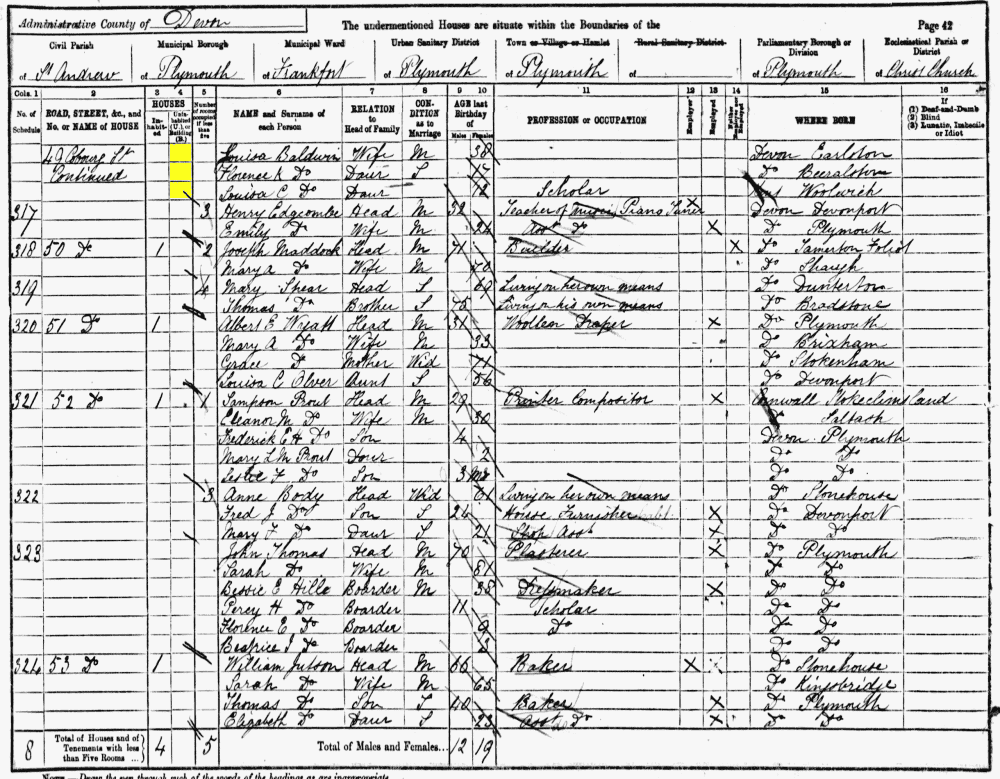 Administrative County of Devon The undermentioned Houses are situate within the Boundaries of the Page 42
Civil Parish Municipal Borough Municipal Ward Urban Sanitary District Town or Village or Hamlet Rural Sanitary District Parliamentary Borough or Division Ecclesiastical Parish or District
of St Andrew of Plymouth of Frankfort of Plymouth of Plymouth of of Plymouth of Christ Church
Cols. 1 2 3 4 5 6 7 8 9 10 11 12 13 14 15 16
No. of Schedule ROAD, STREET, &c., and No. or NAME of HOUSE HOUSES Inhabited Uninhabited (U.), or Building (B.) Number of rooms occupied if less than five NAME and Surname of each Person RELATION to Head of Family CONDITION as to Marriage AGE last Birthday of Males Females PROFESSION or OCCUPATION Employer Employed WHERE BORN If (1) Deaf-and-Dumb (2) Blind (3) Lunatic, Imbecile or Idiot
49 Cobourg St Louisa Baldwin Wife M 38 Devon Earlston
Continued Florence K Do Daur S 17 Do Beeralston
Louisa C Do Daur 12 Scholar Woolwich
317 3 Henry Edgcombe Head M 32 Teacher of music, Piano Tuner X Devon Devonport
Emily Do Wife M 24 Asst Do X Do Plymouth
318 50 Do 1 2 Joseph Maddock Head M 71 Builder X Do Tamerton Foliot
Mary A Do Wife M 70 Do Shaugh
319 4 Mary Spear Head S 69 Living on her own means Do Duntertown
Thomas Do Brother S 75 Living on his own means Do Bradstone
320 51 Do 1 Albert E Wyatt Head M 31 Woollen Draper X Do Plymouth
Mary A Do Wife M 33 Do Brixham
Grace Do Mother Wid 71 Do Stokenham
Louisa C Olver Aunt S 56 Do Devonport
321 52 Do 1 1 Sampson Prout Head M 29 Printer Compositor X Cornwall Stokeclimsland
Eleanor M Do Wife M 30 Do Saltash
Frederick E H Do Son 4 Devon Plymouth
Mary L M Prout Daur 2 Do Do
Leslie F Do Son 3 mo Do Do
322 3 Anne Body Head Wid 61 Living on her own means Do Stonehouse
Fred J Do Son S 24 House Furnisher X Do Devonport
Mary F Do Daur S 21 Shop Asst X Do Do
323 John Thomas Head M 70 Plasterer X Do Plymouth
Sarah Do Wife M 81 Do Do
Bessie E Hille Boarder M 38 Dressmaker X Do Do
Percy H Do Boarder 11 Scholar Do Do
Florence E Do Boarder 9 Do Do Do
Beatrice J Do Boarder Do Do
324 53 Do 1 William Jutson Head M 66 Baker X Do Stonehouse
Sarah Do Wife M 65 Do Kingsbridge
Thomas Do Son S 40 Baker X Do Plymouth
Elizabeth Do Daur S 23 Asst Do X Do Do
8 Total of Houses and of Tenements with less than Five Rooms ... 4 5 Total of Males and Females... 12 19
NOTE.—Draw the pen through such of the words of the headings as are inappropriate.